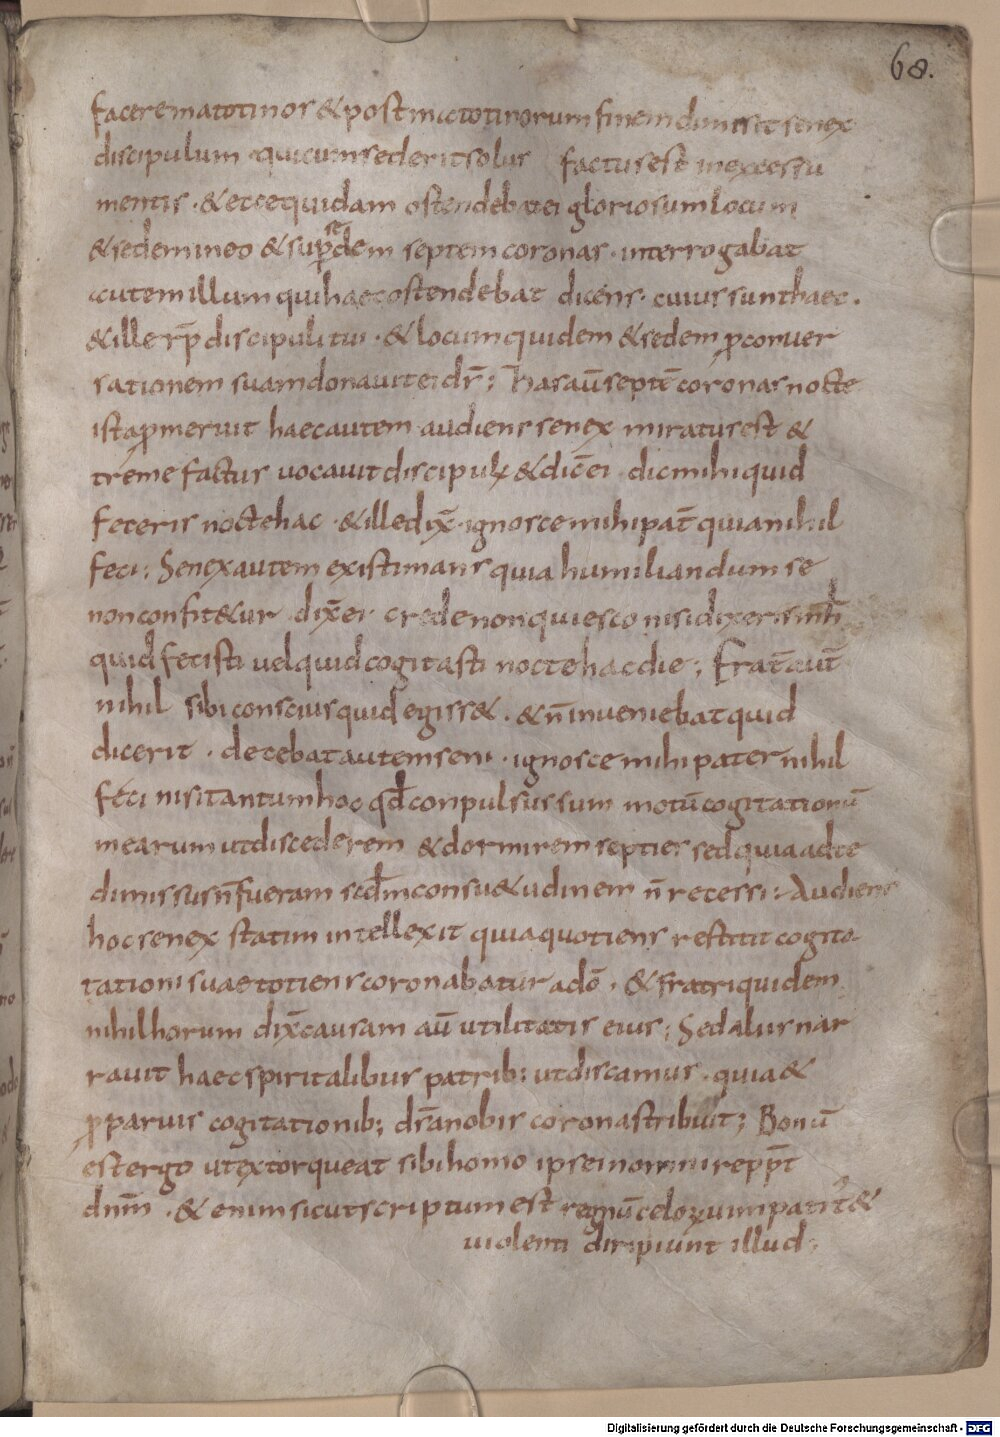 68.
facere matotinos & post matotinorum finem dimisit senex
discipulum qui cum sederit solus factus est in excessu
mentis · & ecce quidam ostendebat ei gloriosum locum
& sedem in eo & sup̄ sedem septem coronas · interrogabat
autem illum qui haec ostendebat dicens · cuius sunt haec .
& ille rp̄ discipuli tui · & locum quidem & sedem p̄ conuer
sationem suam donauit ei dr̄ ; has aū septē coronas nocte
ista p̄meruit haec autem audiens senex miratus est &
treme factus uocauit discipulū & dic̄ ei dic mihi quid
feceris nocte hac · & ille dix̄ · ignosce mihi pat̄ quia nihil
feci ; Senex autem existimans quia humiliandum se
non confit&ur dix̄ ei crede non quiesco nisi dixeris mh̄
quid fecisti uel quid cogitasti nocte hac die ; Frat̄ aut̄
nihil sibi conscius quid egiss& . & n̄ inueniebat quid
dicerit . dicebat autem seni · ignosce mihi pater nihil
feci nisi tantum hoc qd̄ conpulsus sum motū cogitationū
mearum ut discederem & dormirem septies sed quia ad te
dimissus n̄ fueram scd̄m consu&udinem n̄ recessi ; Audiens
hoc senex statim intellexit quia quotiens restitit cogita
tationi suae totiens coronabatur a dō . & fratri quidem
nihil horum dix̄ causam aū utilitatis eius ; Sed alius nar
rauit haec spiritalibus patrib; ut discamus . quia &
p̄ paruis cogitationib; dr̄ a nobis coronas tribuit ; Bonū
est ergo ut extorqueat sibi homo ipse in omni re pp̄t
dnm̄ . & enim sicut scriptum est regnū celoꝝ uim patit̄ &
uiolenti diripiunt illud ;
Digitalisierung gefördert durch die Deutsche Forschungsgemeinschaft - DFG